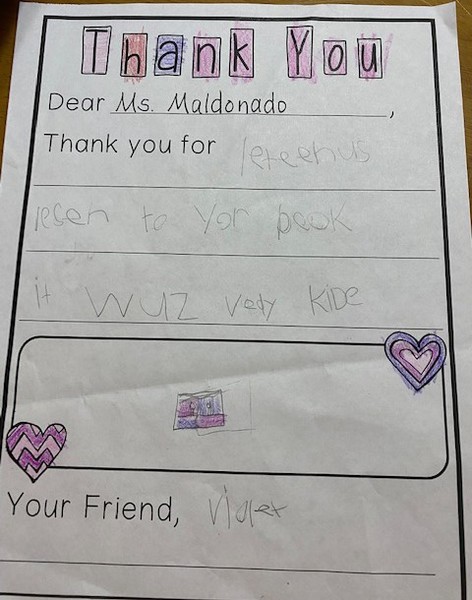 Thank You
Dear Ms. Maldonado,
Thank you for leteenus
lesen to Yor book
it wuz vedy kide
Your Friend, Violet